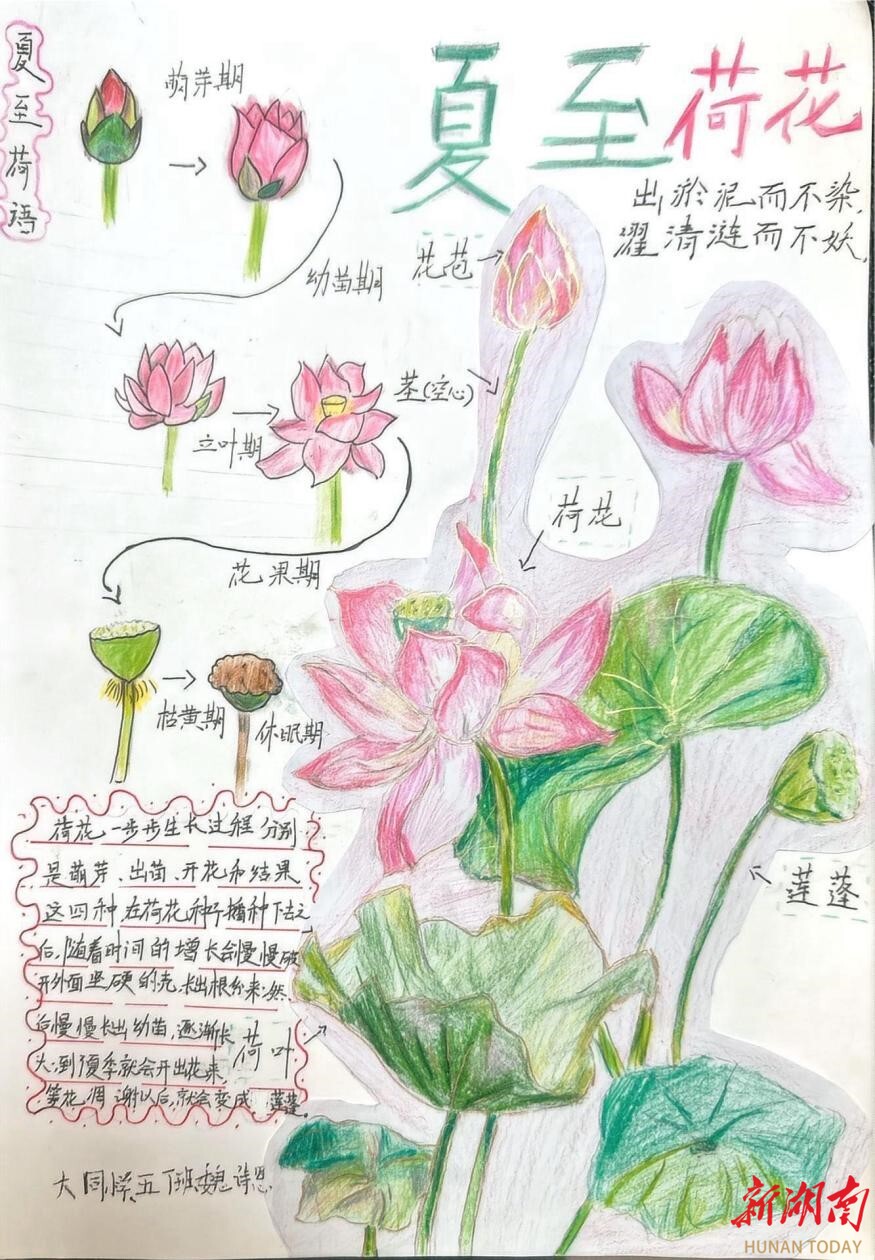 夏至荷语
夏至荷花
出淤泥而不染,
濯清涟而不妖,
萌芽期
幼苗期
立叶期
花果期
枯黄期
休眠期
花苞
茎(空心)
荷花
莲蓬
荷叶
荷花一步步生长过程分别
是萌芽、出苗、开花和结果
这四种,在荷花种子播种下去之
后,随着时间的增长会慢慢破
开外面坚硬的壳,长出根分来,然
后慢慢长出幼苗,逐渐长
大,到夏季就会开出花来
等花凋谢以后,就会变成莲蓬。
大同学五丁班魏诗恩
新湖南
HUNAN TODAY